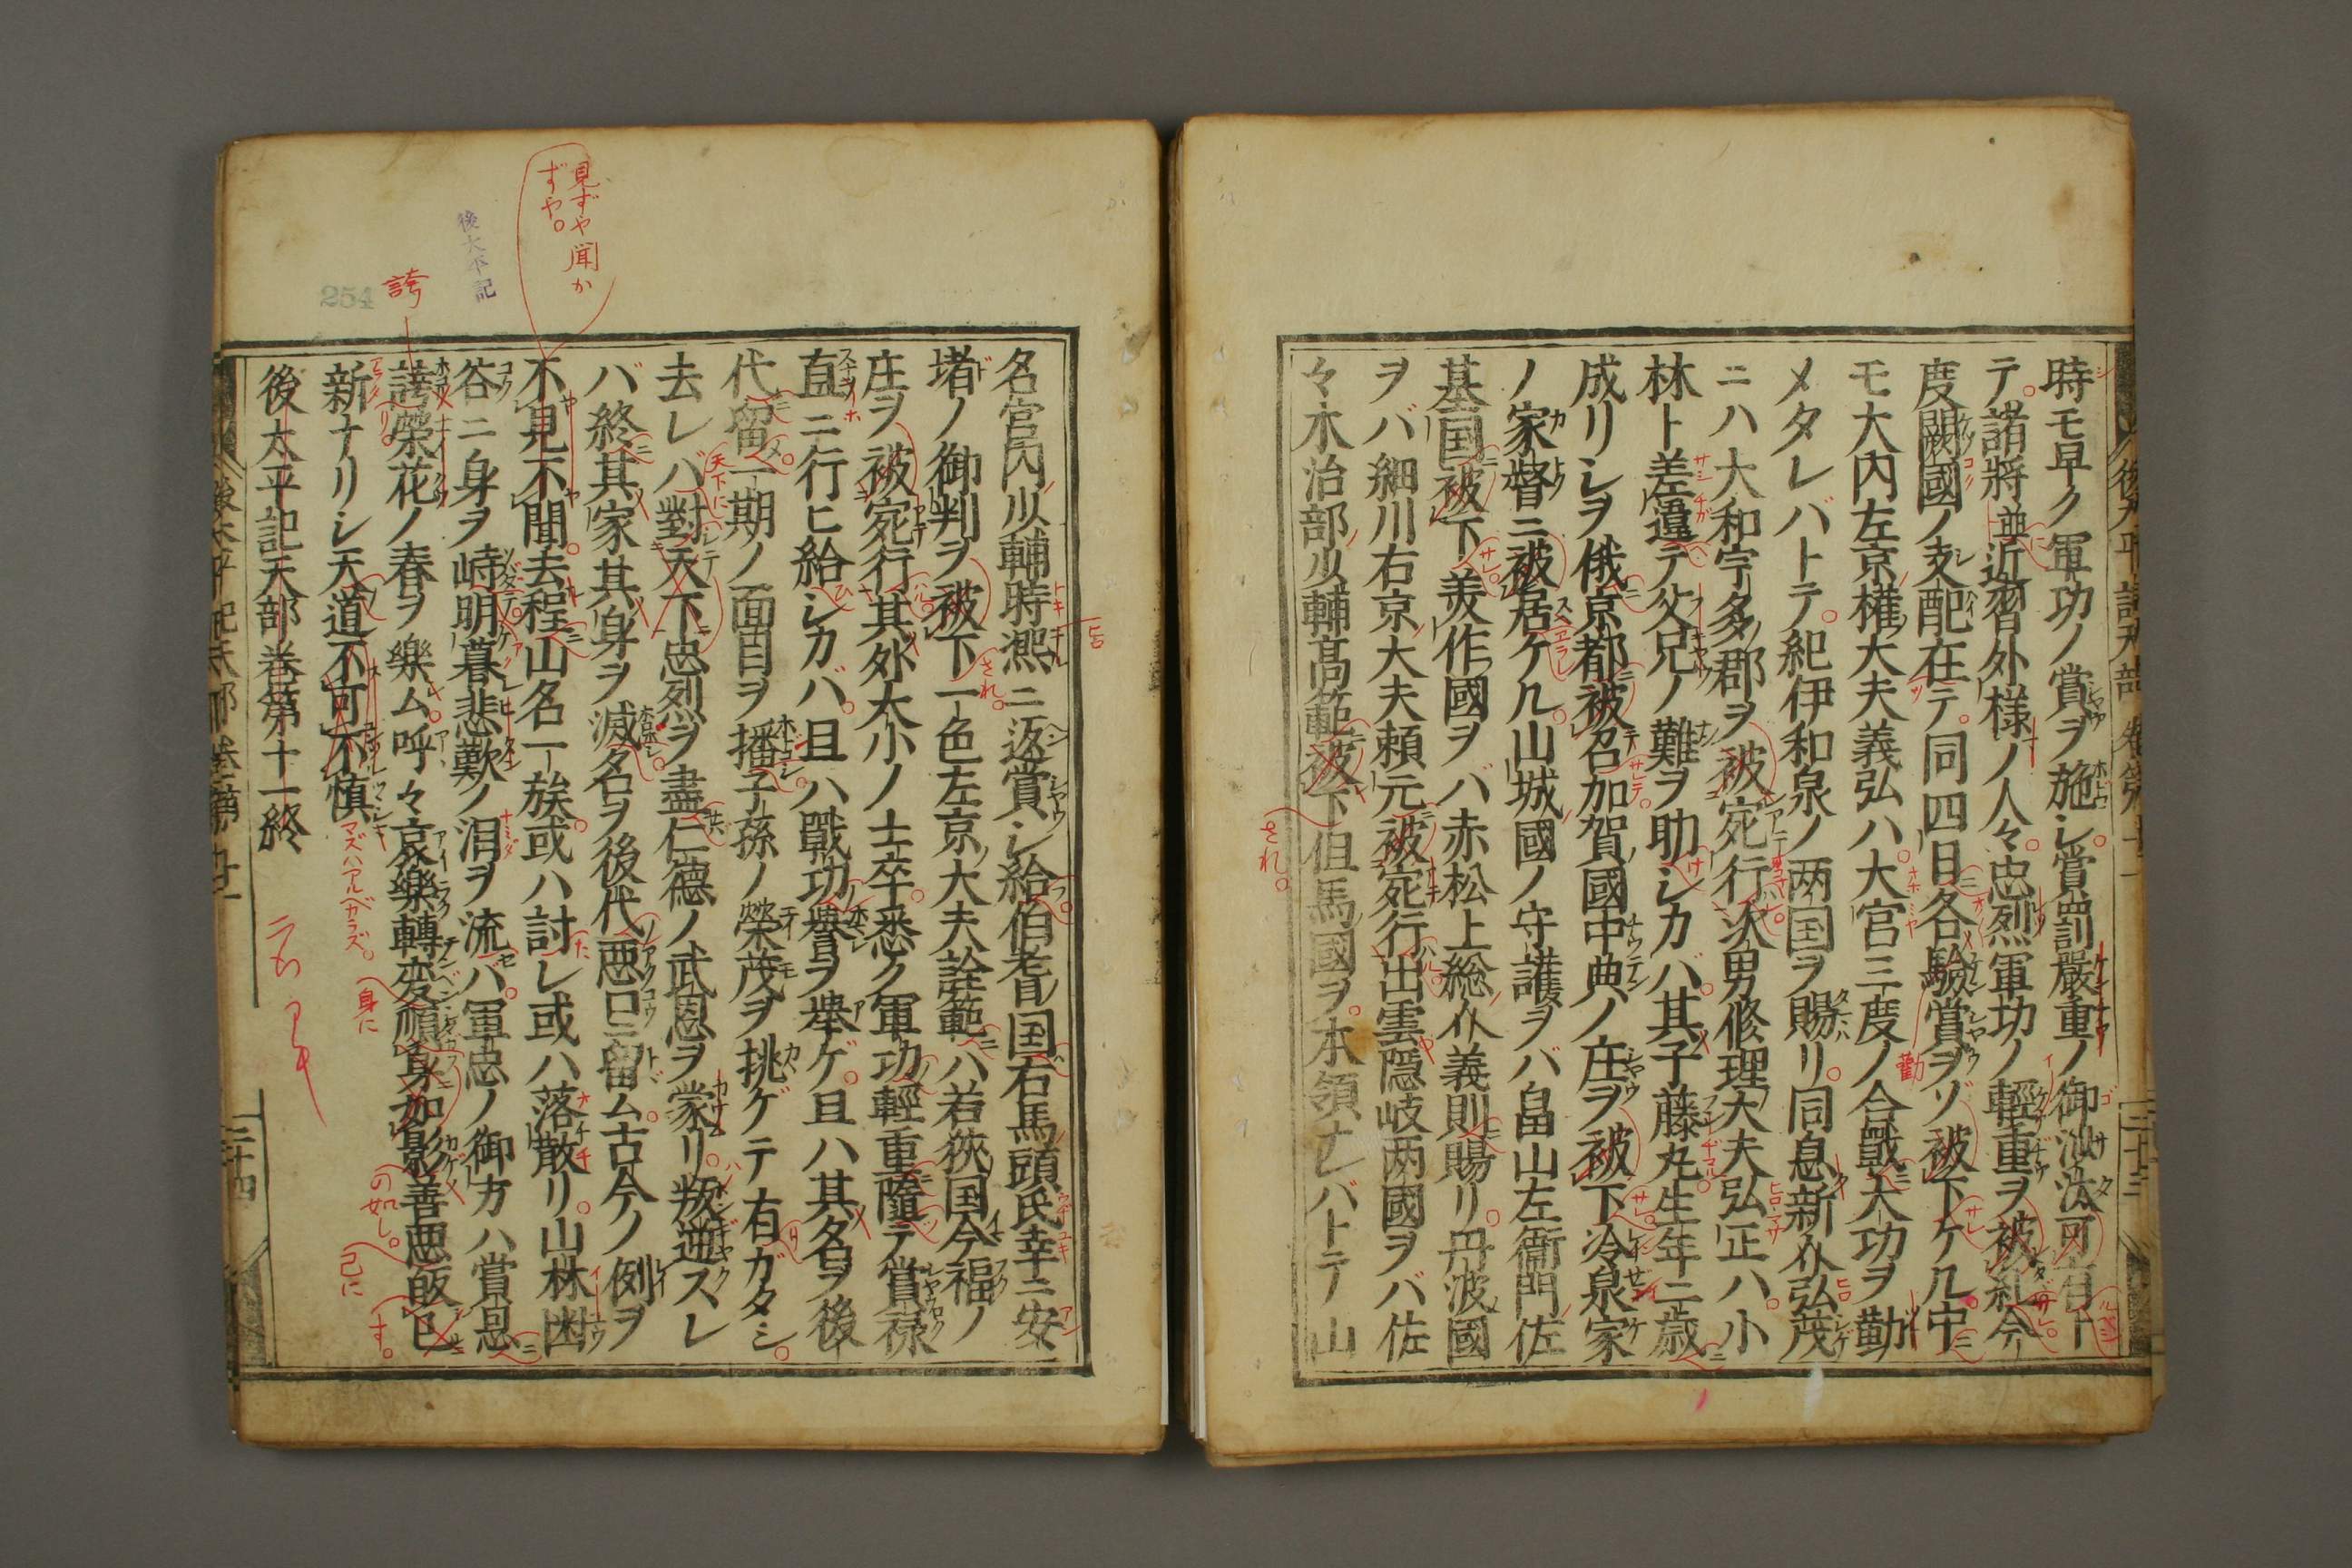 時モ早ク軍功ノ賞ヲ施シ賞罰嚴重ノ御沙汰可有ト
テ諸將並近習外様ノ人々忠烈軍功ノ輕重ヲ被糺今
度闕國ノ支配在テ同四日各驗賞ヲゾ被下ケル中ニ
モ大内左京權大夫義弘ハ大宮三度ノ合戰大功ヲ勤
メタレバトテ紀伊和泉ノ両国ヲ賜リ同息新介弘茂
ニハ大和宇多郡ヲ被宛行次男修理大夫弘正ハ小
林ト差違テ父兄ノ難ヲ助シカバ其子藤丸生年二歳ニ
成リシヲ俄京都被召加賀國中典ノ庄ヲ被下冷泉家
ノ家督ニ被居ケル山城國ノ守護ヲバ畠山左衞門佐
基国被下美作國ヲバ赤松上総介義則賜リ丹波國
ヲバ細川右京大夫頼元被宛行出雲隠岐両國ヲバ佐
々木治部少輔髙範被下伹馬國ヲ本領ナレバトテ山
後太平記天部 卷第十一
二十三
名宮内少輔時凞ニ返賞シ給伯耆国右馬頭氏幸ニ安
堵ノ御判ヲ被下一色左京大夫詮範ハ若狹国今福ノ
庄ヲ被宛行其外大小ノ士卒悉ク軍功輕重隨テ賞禄
直ニ行ヒ給シカバ且ハ戰功譽ヲ擧ゲ且ハ其名ヲ後
代留一期ノ面目ヲ播子孫ノ榮茂ヲ挑ゲテ有ガタシ
去レバ對天下忠烈ヲ盡仁德ノ武恩ヲ蒙リ叛逆スレ
バ終其家其身ヲ滅名ヲ後代惡口ニ留ム古今ノ例ヲ
不見不聞去程山名一族或ハ討レ或ハ落散リ山林凶
谷ニ身ヲ峙明暮悲歎ノ泪ヲ流ハ軍忠ノ御方ハ賞恩ニ
誇榮花ノ春ヲ樂ム呼々哀樂轉変順身如影善惡皈已
新ナリシ天道不可不慎
後太平記天部卷第十一終
後太平記天部卷第十一
二十四
見ずや聞か
ずや。
後太平記
誇
254
天下に
され。
され。
の如し。
身に
己に
す。
マズハアルベカラズ。